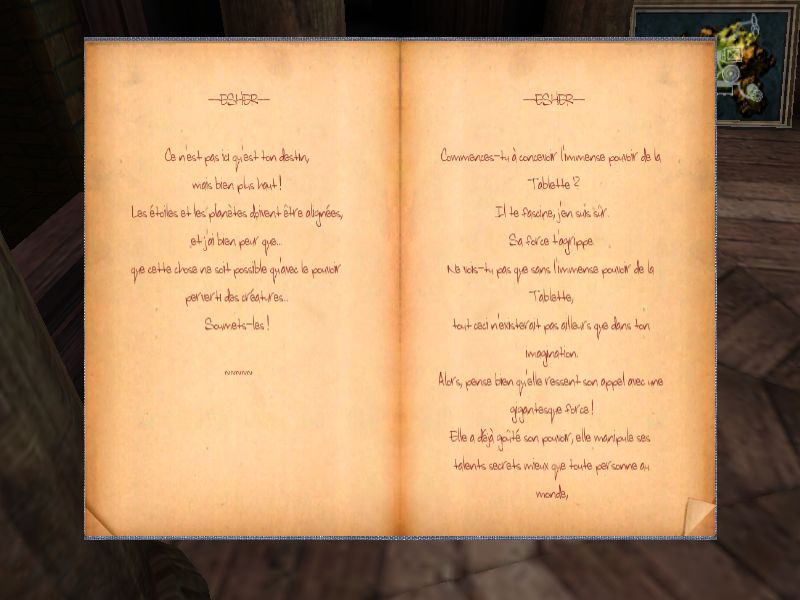 ESHER
Ce n'est pas ici qu'est ton destin,
mais bien plus haut !
Les étoiles et les planètes doivent être alignées,
et j'ai bien peur que...
que cette chose ne soit possible qu'avec le pouvoir
perverti des créatures...
Soumets-les !
~~~~~
ESHER
Commences-tu à concevoir l'immense pouvoir de la
Tablette ?
Il te fascine, j'en suis sûr.
Sa force t'agrippe.
Ne vois-tu pas que sans l'immense pouvoir de la
Tablette,
tout ceci n'existerait pas ailleurs que dans ton
imagination.
Alors, pense bien qu'elle ressent son appel avec une
gigantesque force !
Elle a déjà goûté son pouvoir, elle manipule ses
talents secrets mieux que toute personne au
monde,